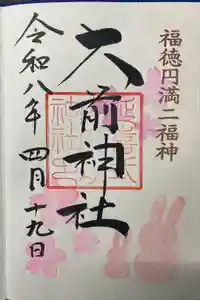 福徳円満二福神
大前神社
令和八年 四月十九日